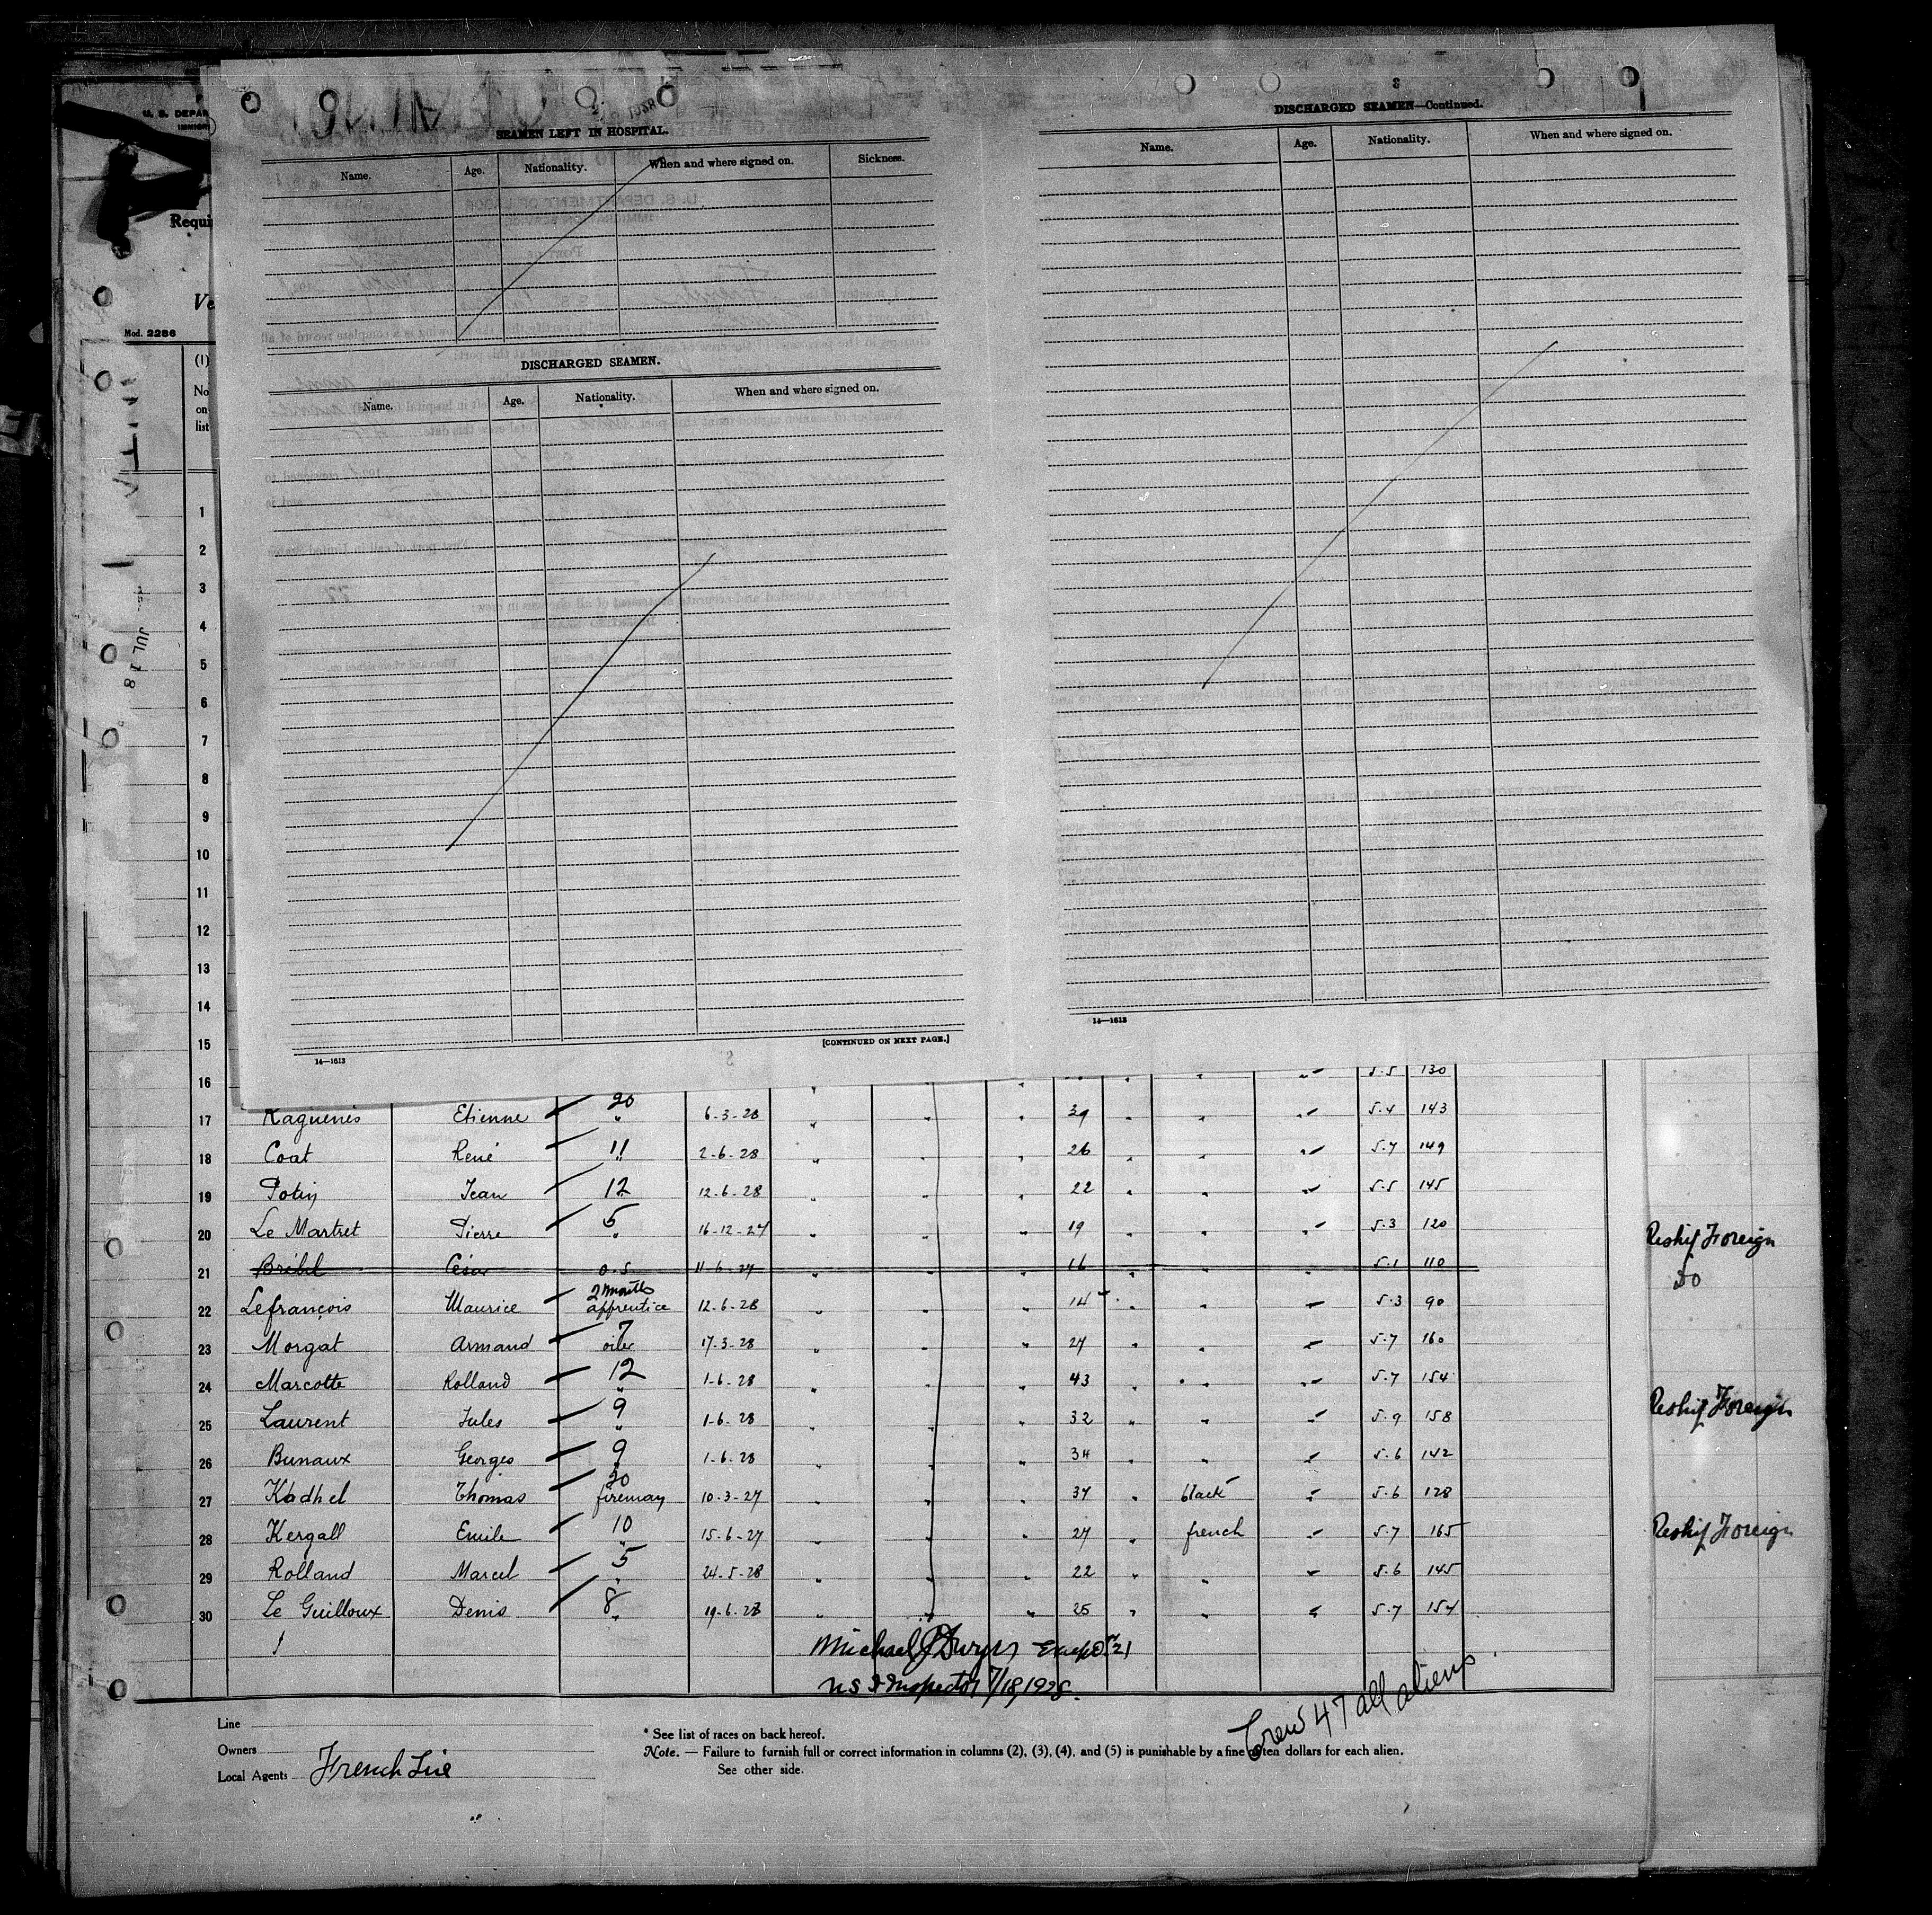 U. S. DEPAR
Requi
Ve
Mod. 2286
(1)
No
on
list
JUL 18
SEAMEN LEFT IN HOSPITAL.
Name. Age. Nationality. When and where signed on. Sickness.
DISCHARGED SEAMEN.
Name. Age. Nationality. When and where signed on.
14—1613
[CONTINUED ON NEXT PAGE.]
3
DISCHARGED SEAMEN—Continued.
Name. Age. Nationality. When and where signed on.
14—1613
1
2
3
4
5
6
7
8
9
10
11
12
13
14
15
16 5.5 130
17 Kaguenés Etienne 20 " 6-3-28 " " " 39 " " " 5.4 143
18 Coat René 11 " 2-6-28 " " " 26 " " " 5.7 149
19 Potin Jean 12 12-6-28 " " " 22 " " " 5.5 145
20 Le Martret Pierre 5 " 16-12-27 " " " 19 " " " 5.3 120 Reship Foreign
21 Bribil César o.s. 11-6-27 " " " 16 " " " 5.1 110 Do
22 Lefrançois Maurice 2 months apprentice 12-6-28 " " " 14 " " " 5.3 90
23 Morgat Armand 7 oiler 17-3-28 " " " 27 " " " 5.7 160
24 Marcotte Rolland 12 " 1-6-28 " " " 43 " " " 5.7 154
25 Laurent Jules 9 " 1-6-28 " " " 32 " " " 5.9 158 Reship Foreign
26 Bunaux Georges 9 " 1-6-28 " " " 34 " " " 5.6 142
27 Kadhel Thomas 20 fireman 10-3-27 " " " 37 " black " 5.6 128
28 Kergall Emile 10 " 15-6-27 " " " 27 " french " 5.7 165 Reship Foreign
29 Rolland Marcel 5 " 24-5-28 " " " 22 " " " 5.6 145
30 Le Guilloux Denis 8 " 19-6-28 " " " 25 " " " 5.7 154
Michael J Dwyer Except 21
US I Inspector 7/18, 1928.
Crew 47 all aliens.
Line
Owners
Local Agents French Line
* See list of races on back hereof.
Note. — Failure to furnish full or correct information in columns (2), (3), (4), and (5) is punishable by a fine of ten dollars for each alien.
See other side.